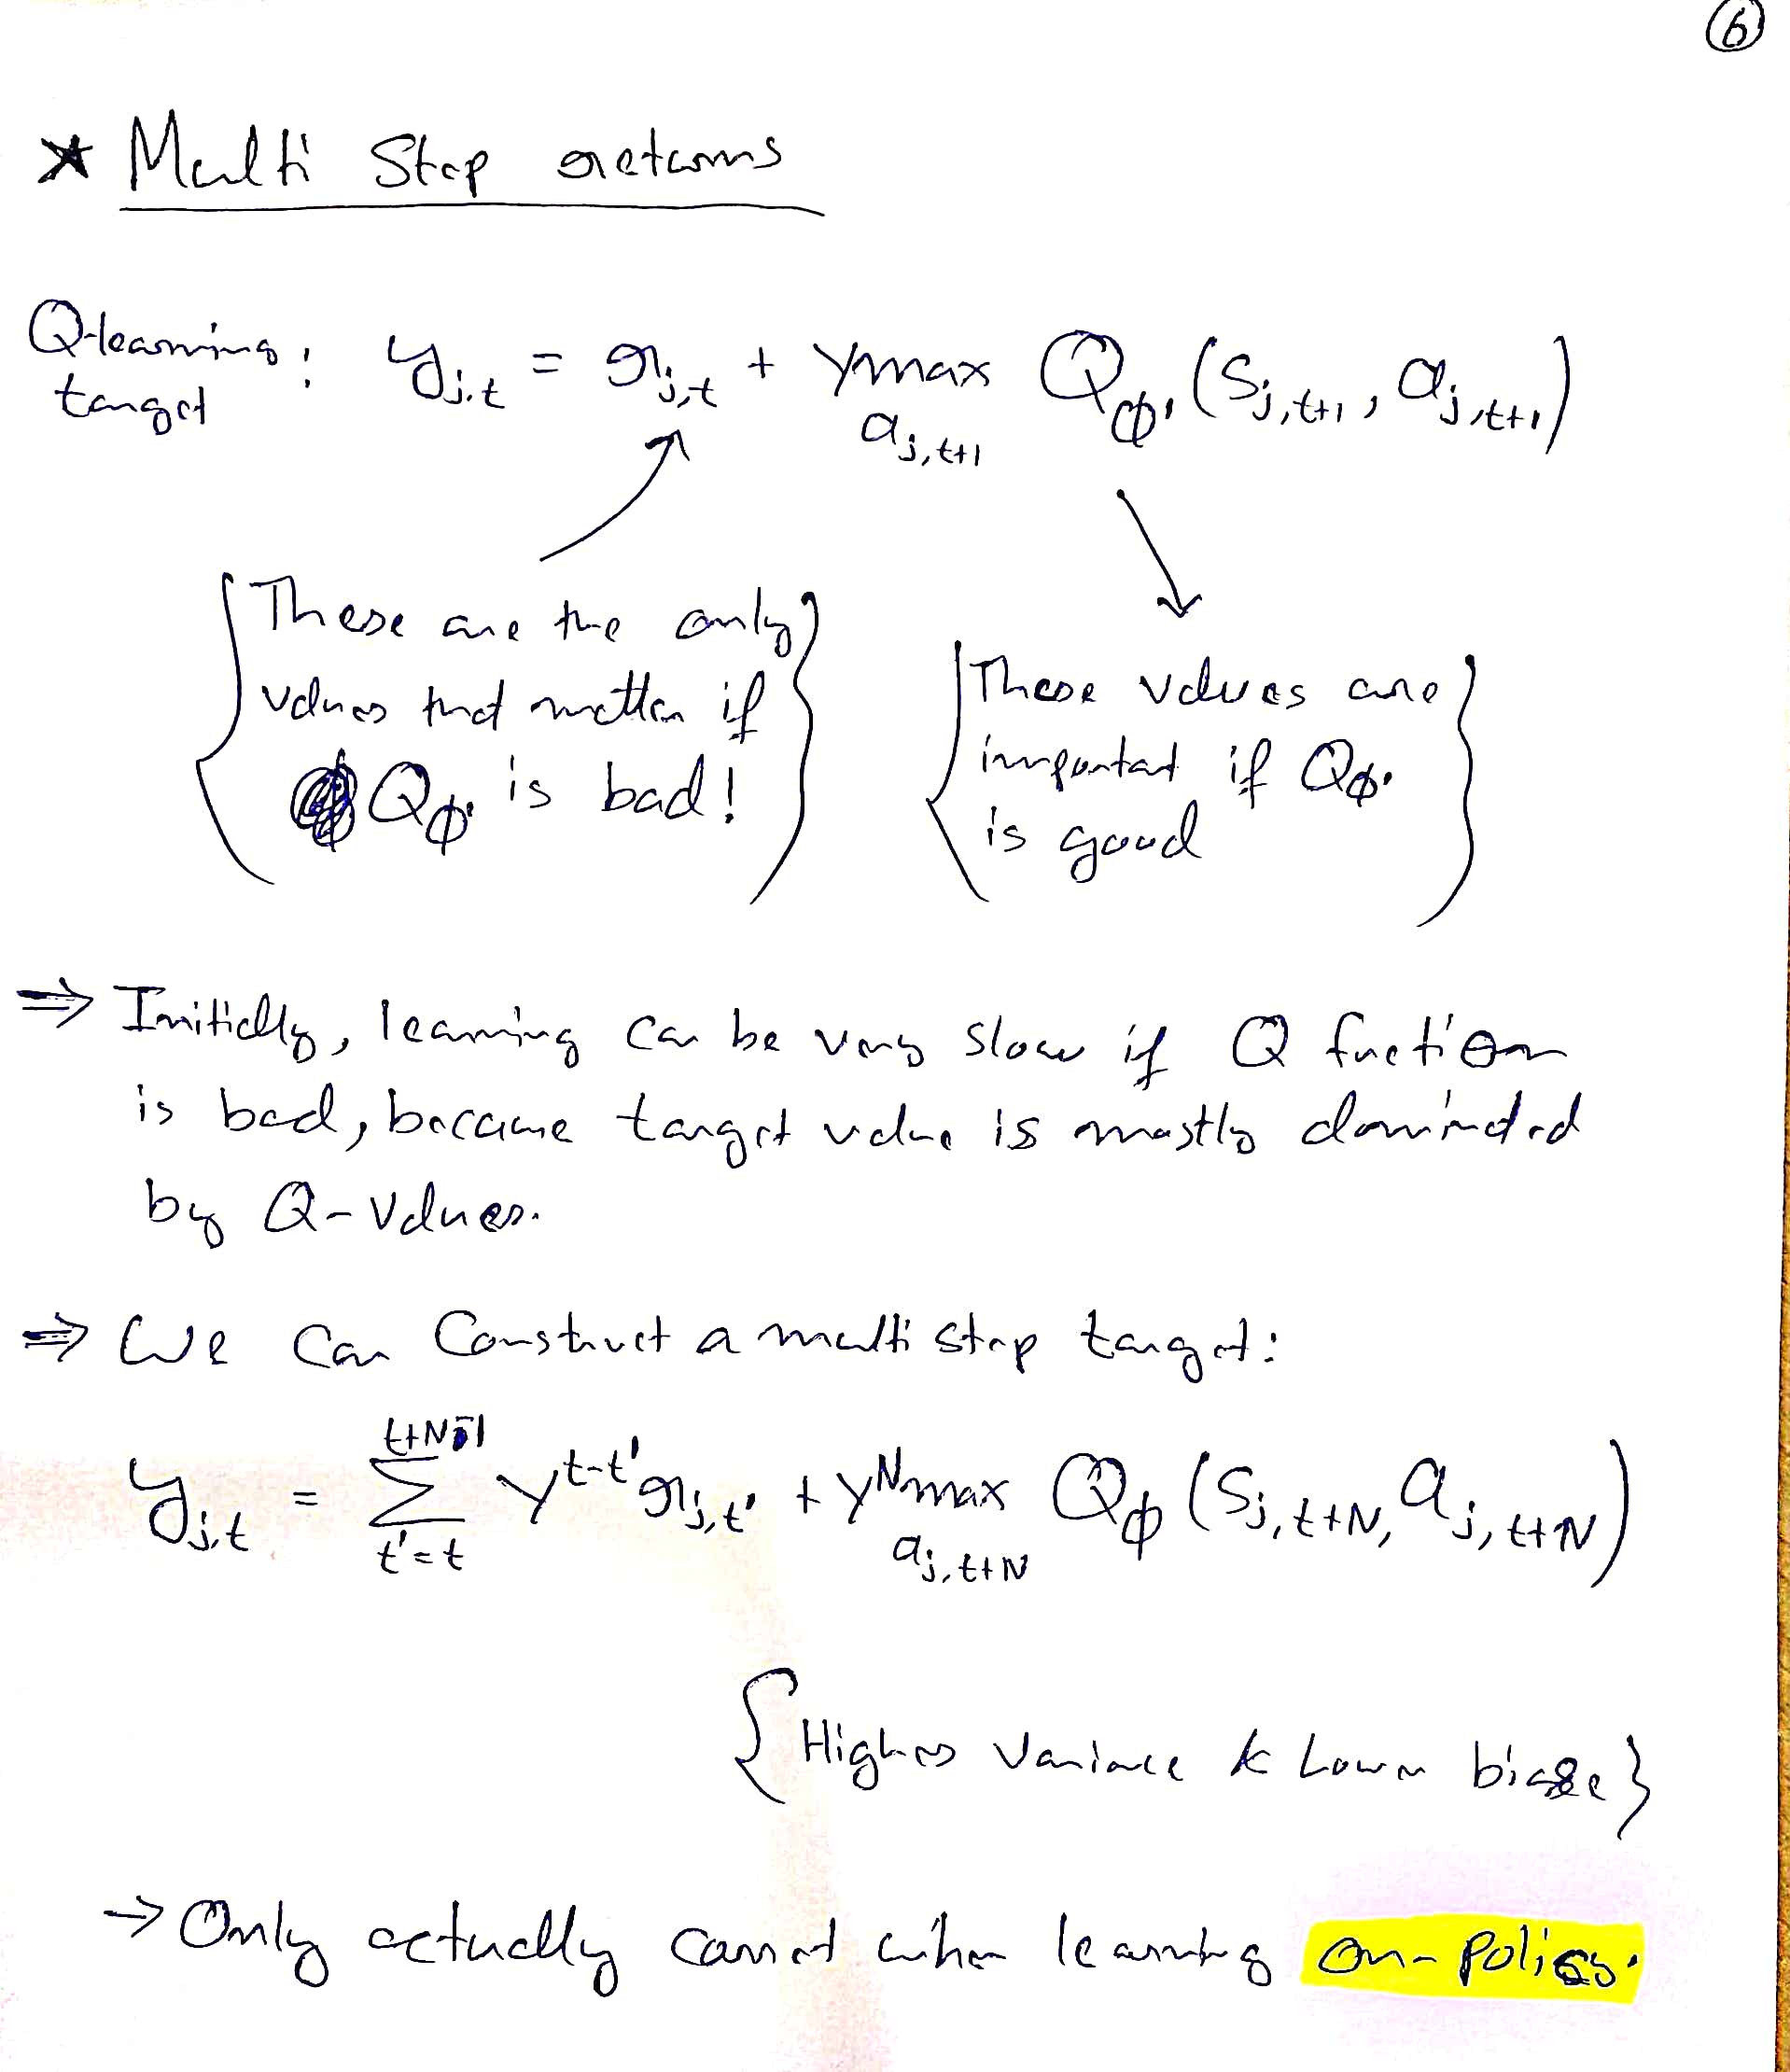 6
* Multi Step returns
Q-learning target: y_{j,t} = r_{j,t} + γ max_{a_{j,t+1}} Q_{φ'} (s_{j,t+1}, a_{j,t+1})
{These are the only
values that matter if
Q_{φ'} is bad!}
{These values are
important if Q_{φ'}
is good}
⇒ Initially, learning can be very slow if Q fuction
is bad, because target value is mostly dominated
by Q-values.
⇒ We can Construct a multi step target:
y_{j,t} = Σ_{t'=t}^{t+N-1} γ^{t-t'} r_{j,t'} + γ^N max_{a_{j,t+N}} Q_φ (s_{j,t+N}, a_{j,t+N})
{Higher Variance & Lower biase}
→ Only actually correct when learning on-policy.